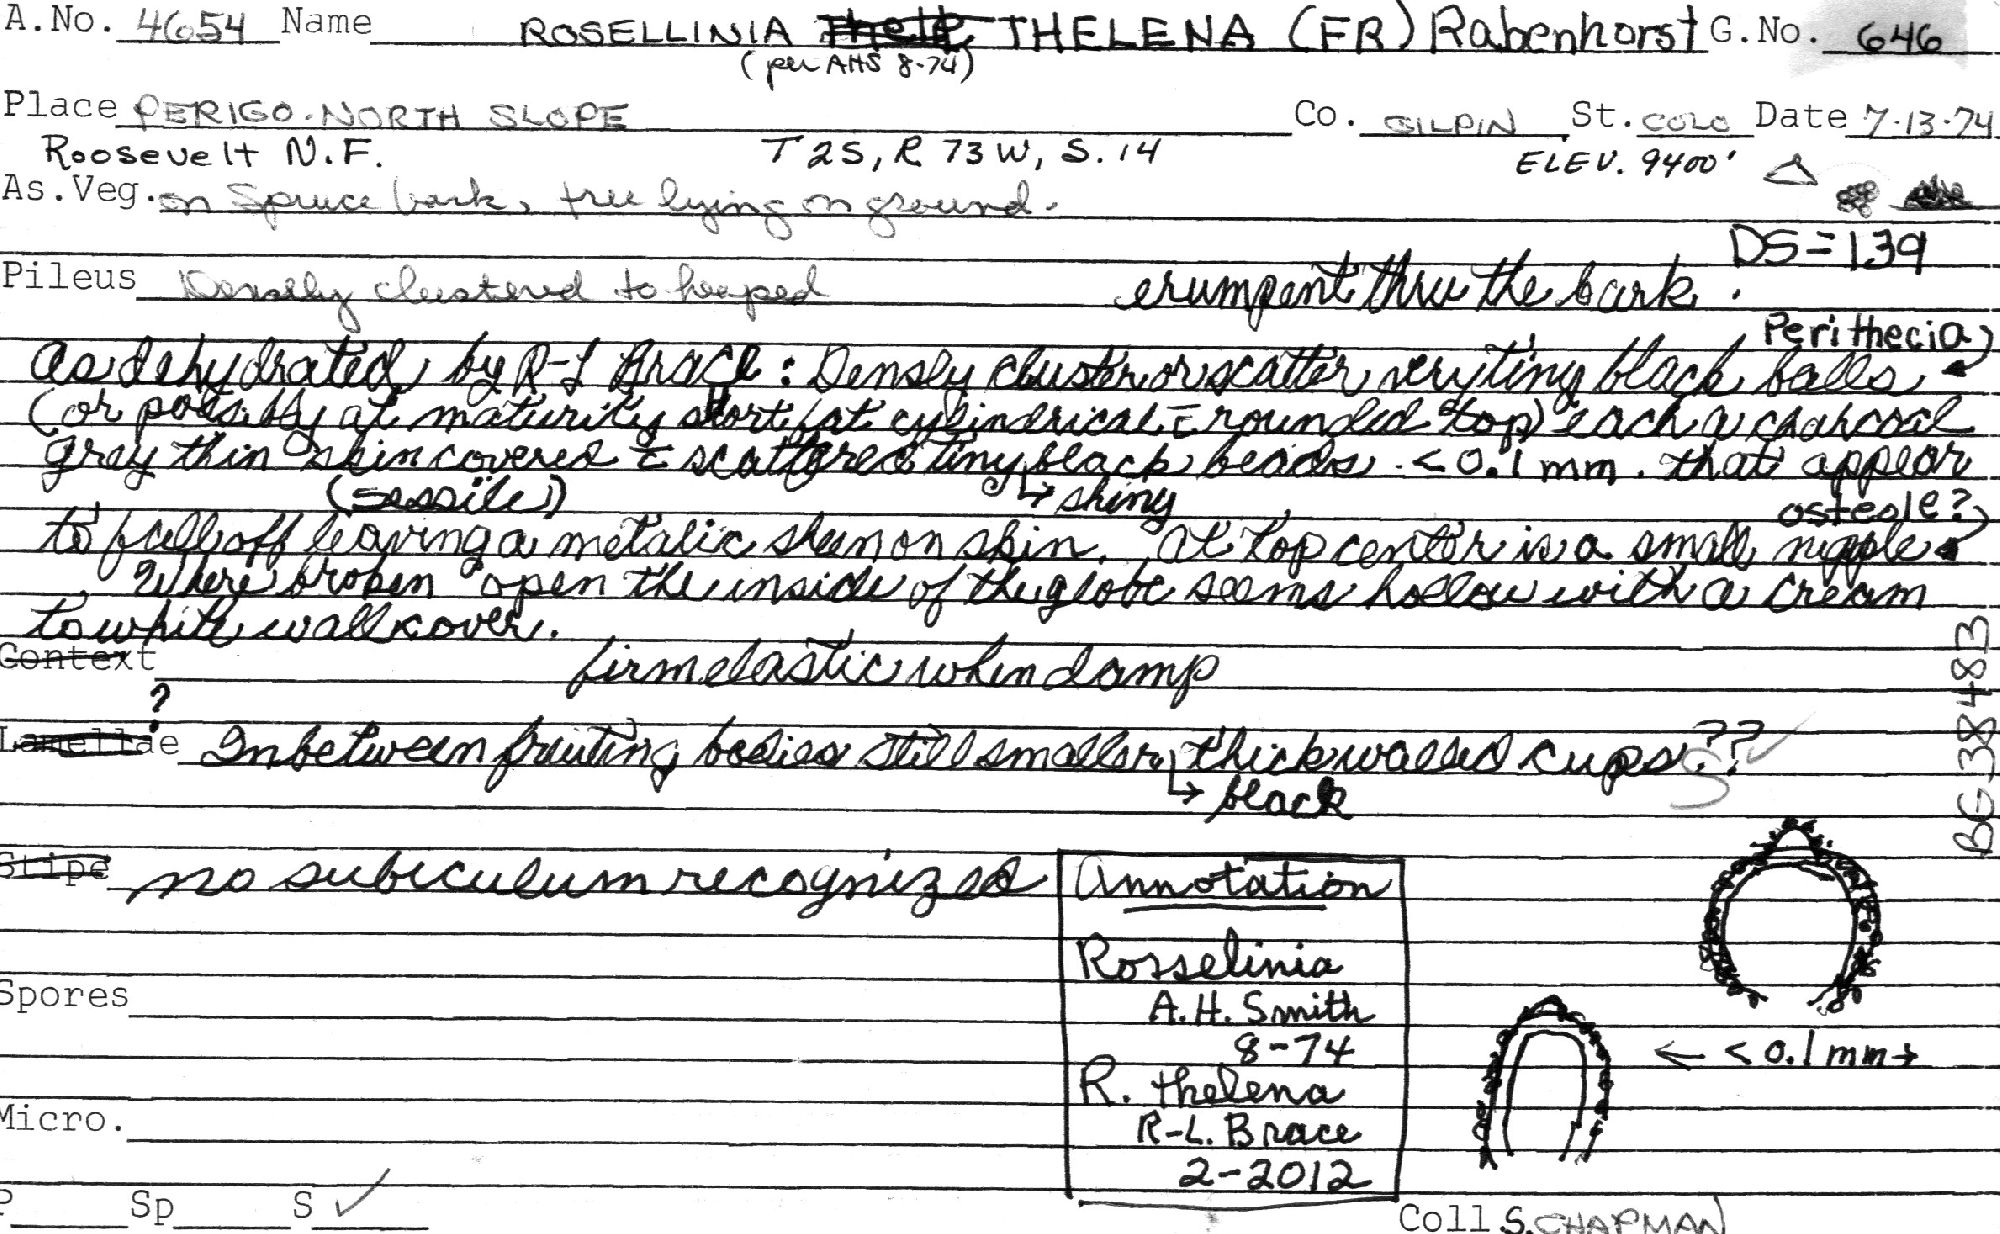 A.No. 4654 Name ROSELLINIA Thele THELENA (FR) Rabenhorst G.No. 646
(per AHS 8-74)
Place PERIGO-NORTH SLOPE Co. GILPIN St. COLO Date 7-13-74
Roosevelt N.F. T 2S, R 73 W, S. 14 ELEV. 9400'
As.Veg. on Spruce bark, tree lying on ground.
DS=139
Pileus Densely clustered to heaped erumpent thru the bark.
Perithecia
As dehydrated by R-L Brace: Densly cluster or scatter very tiny black balls
(or possibly at maturity short fat cylindrical = rounded top) each a charcoal
grey thin skin covered = scattered tiny black beads. <0.1 mm. that appear
(sessile) → shiny osteole?
to fall off leaving a metalic sheen on skin. At top center is a small nipple.
Where broken open the inside of the globe seems hollow with a cream
to white wall cover.
Context firm elastic when damp
?
Lamellae In between fruiting bodies still smaller, thick walled cups??
S
→ black
BG 38483
Stipe no subiculum recognized
Annotation
Rosselinia
A.H. Smith
8-74
R. thelena
R-L. Brace
2-2012
Spores
← <0.1mm→
Micro.
P Sp S ✓
Coll S. CHAPMAN